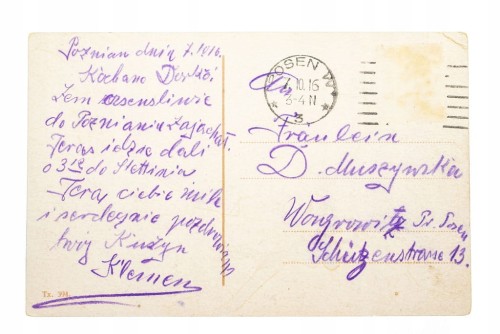 Poznian dnia 7.1016.
Kochana
Żem szensliwie
do Poznania zajachał.
Teras idze dali
o 3 12 do Stettinia
Teras ciebie mile
i serdegnie pozdrawiam
twój Kuzyn
Klemen
Tx. 391.
POSEN W
7.10.16
3-4 N
* 3 *
An
Fräulein
D. Muszynska
Wongrowitz Pr. Posen
Schützenstrasse 13.